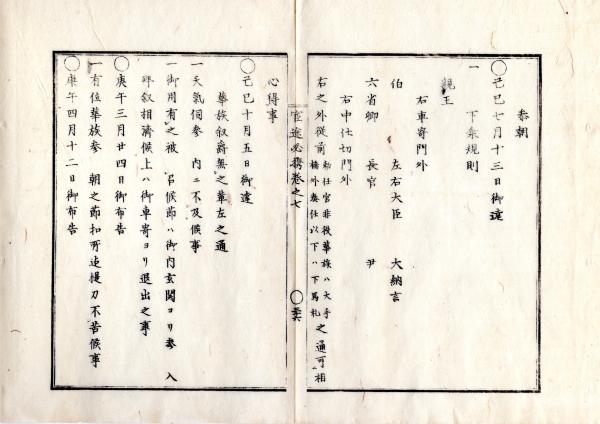 参朝
〇己巳七月十三日御達
一　下乗規則
親王
右車寄門外
伯　左右大臣　大納言
六省卿　長官　尹
右中仕切門外
右之外従前
勅任官非役華族ハ大手
橋外奏任以下ハ下馬札
之通可相
官途必携巻之七
〇
心得事
〇己巳十月五日御達
華族叙爵無之輩左之通
一天気伺参　内ニ不及候事
一御用有之被　召候節ハ御内玄関ヨリ参　入
拝叙相済候上ハ御車寄ヨリ退出之事
〇庚午三月廿四日御布告
一有位華族参　朝之節扣所迄提刀不苦候事
〇庚午四月十二日御布告